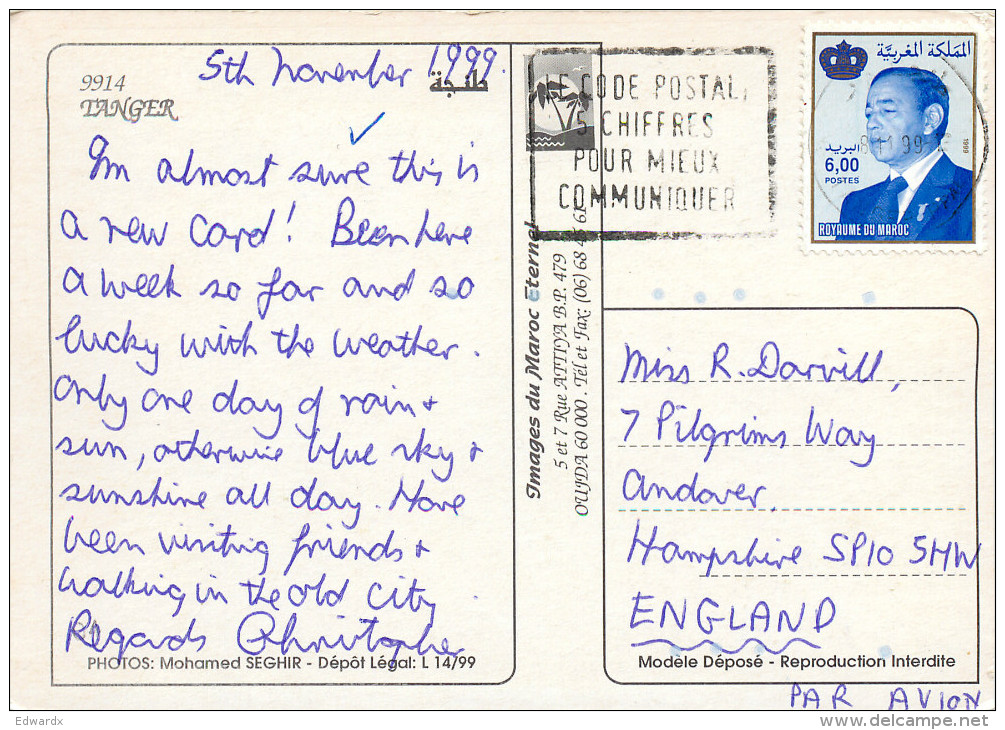 5th November 1999.
9914
TANGER
طنجة
I'm almost sure this is
a new card! Been here
a week so far and so
lucky with the weather.
Only one day of rain +
sun, otherwise blue sky +
sunshine all day. Have
been visiting friends +
walking in the old city.
Regards Christopher
PHOTOS: Mohamed SEGHIR - Dépôt Légal: L 14/99
Images du Maroc Eternel
5 et 7 Rue ATTIYA B.P. 479
OUJDA 60 000. Tél et Fax: (06) 68 61
LE CODE POSTAL,
5 CHIFFRES
POUR MIEUX
COMMUNIQUER
المملكة المغربية
1999
البريد
6,00
POSTES
ROYAUME DU MAROC
Miss R. Darvill,
7 Pilgrims Way
Andover,
Hampshire SP10 5HW
ENGLAND
Modèle Déposé - Reproduction Interdite
PAR AVION
Edwardx
delcampe.net